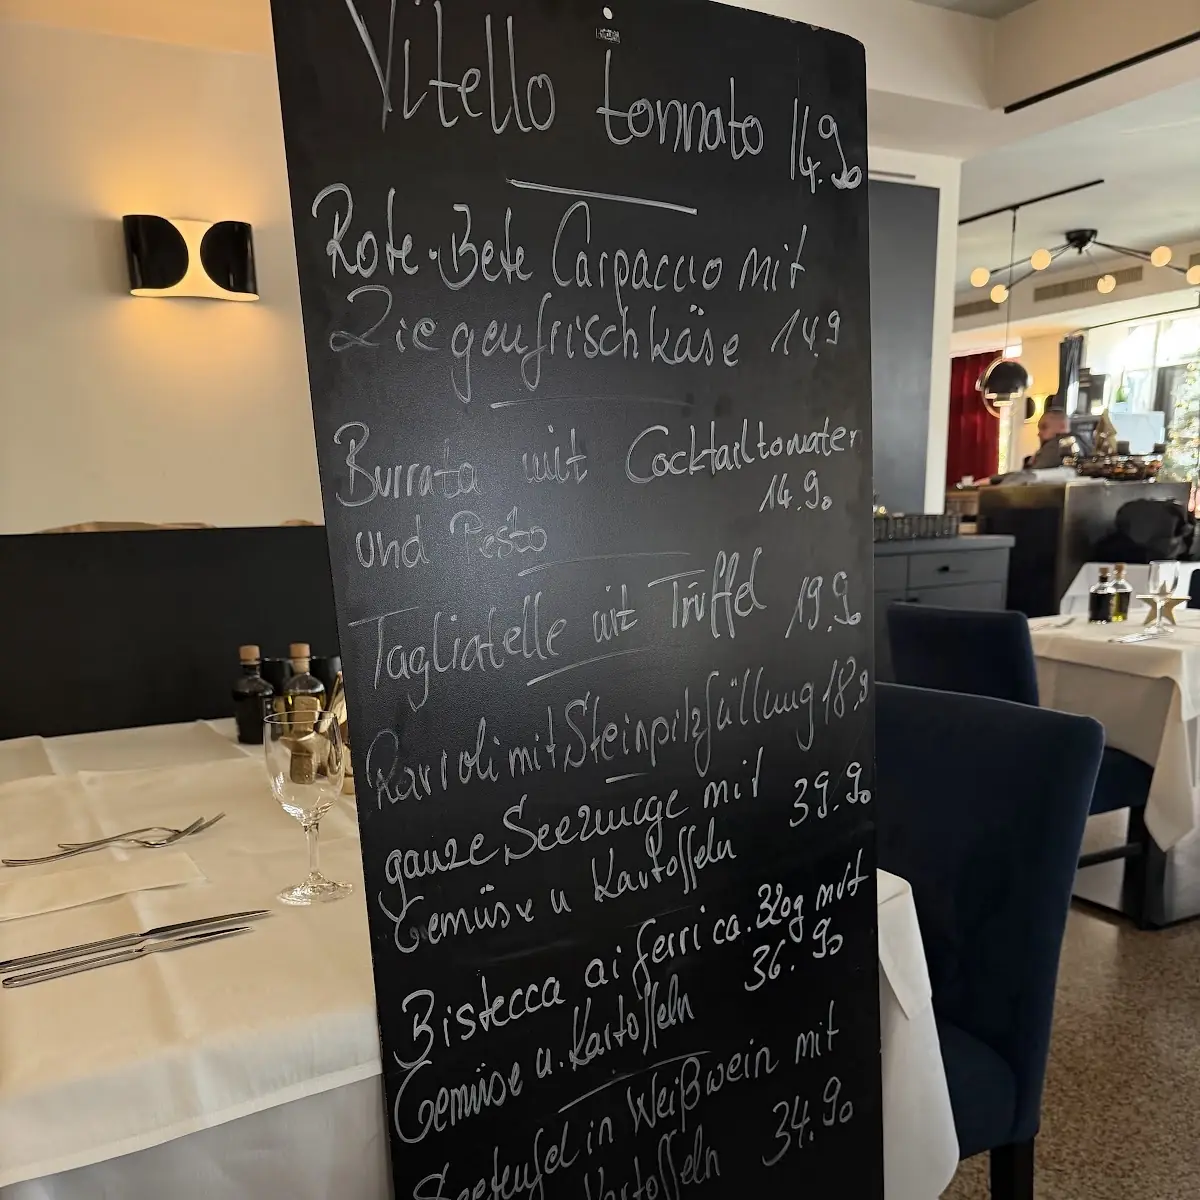 Vitello tonnato 14.90
Rote-Bete Carpaccio mit
Ziegenfrischkäse 14.9
Burrata mit Cocktailtomaten
und Pesto 14.90
Tagliatelle mit Trüffel 19.90
Ravioli mit Steinpilzfüllung 18.9
ganze Seezunge mit 39.90
Gemüse u Kartoffeln
Bistecca ai ferri ca. 320g mit
Gemüse u. Kartoffeln 36.90
Seeteufel in Weißwein mit
Kartoffeln 34.90